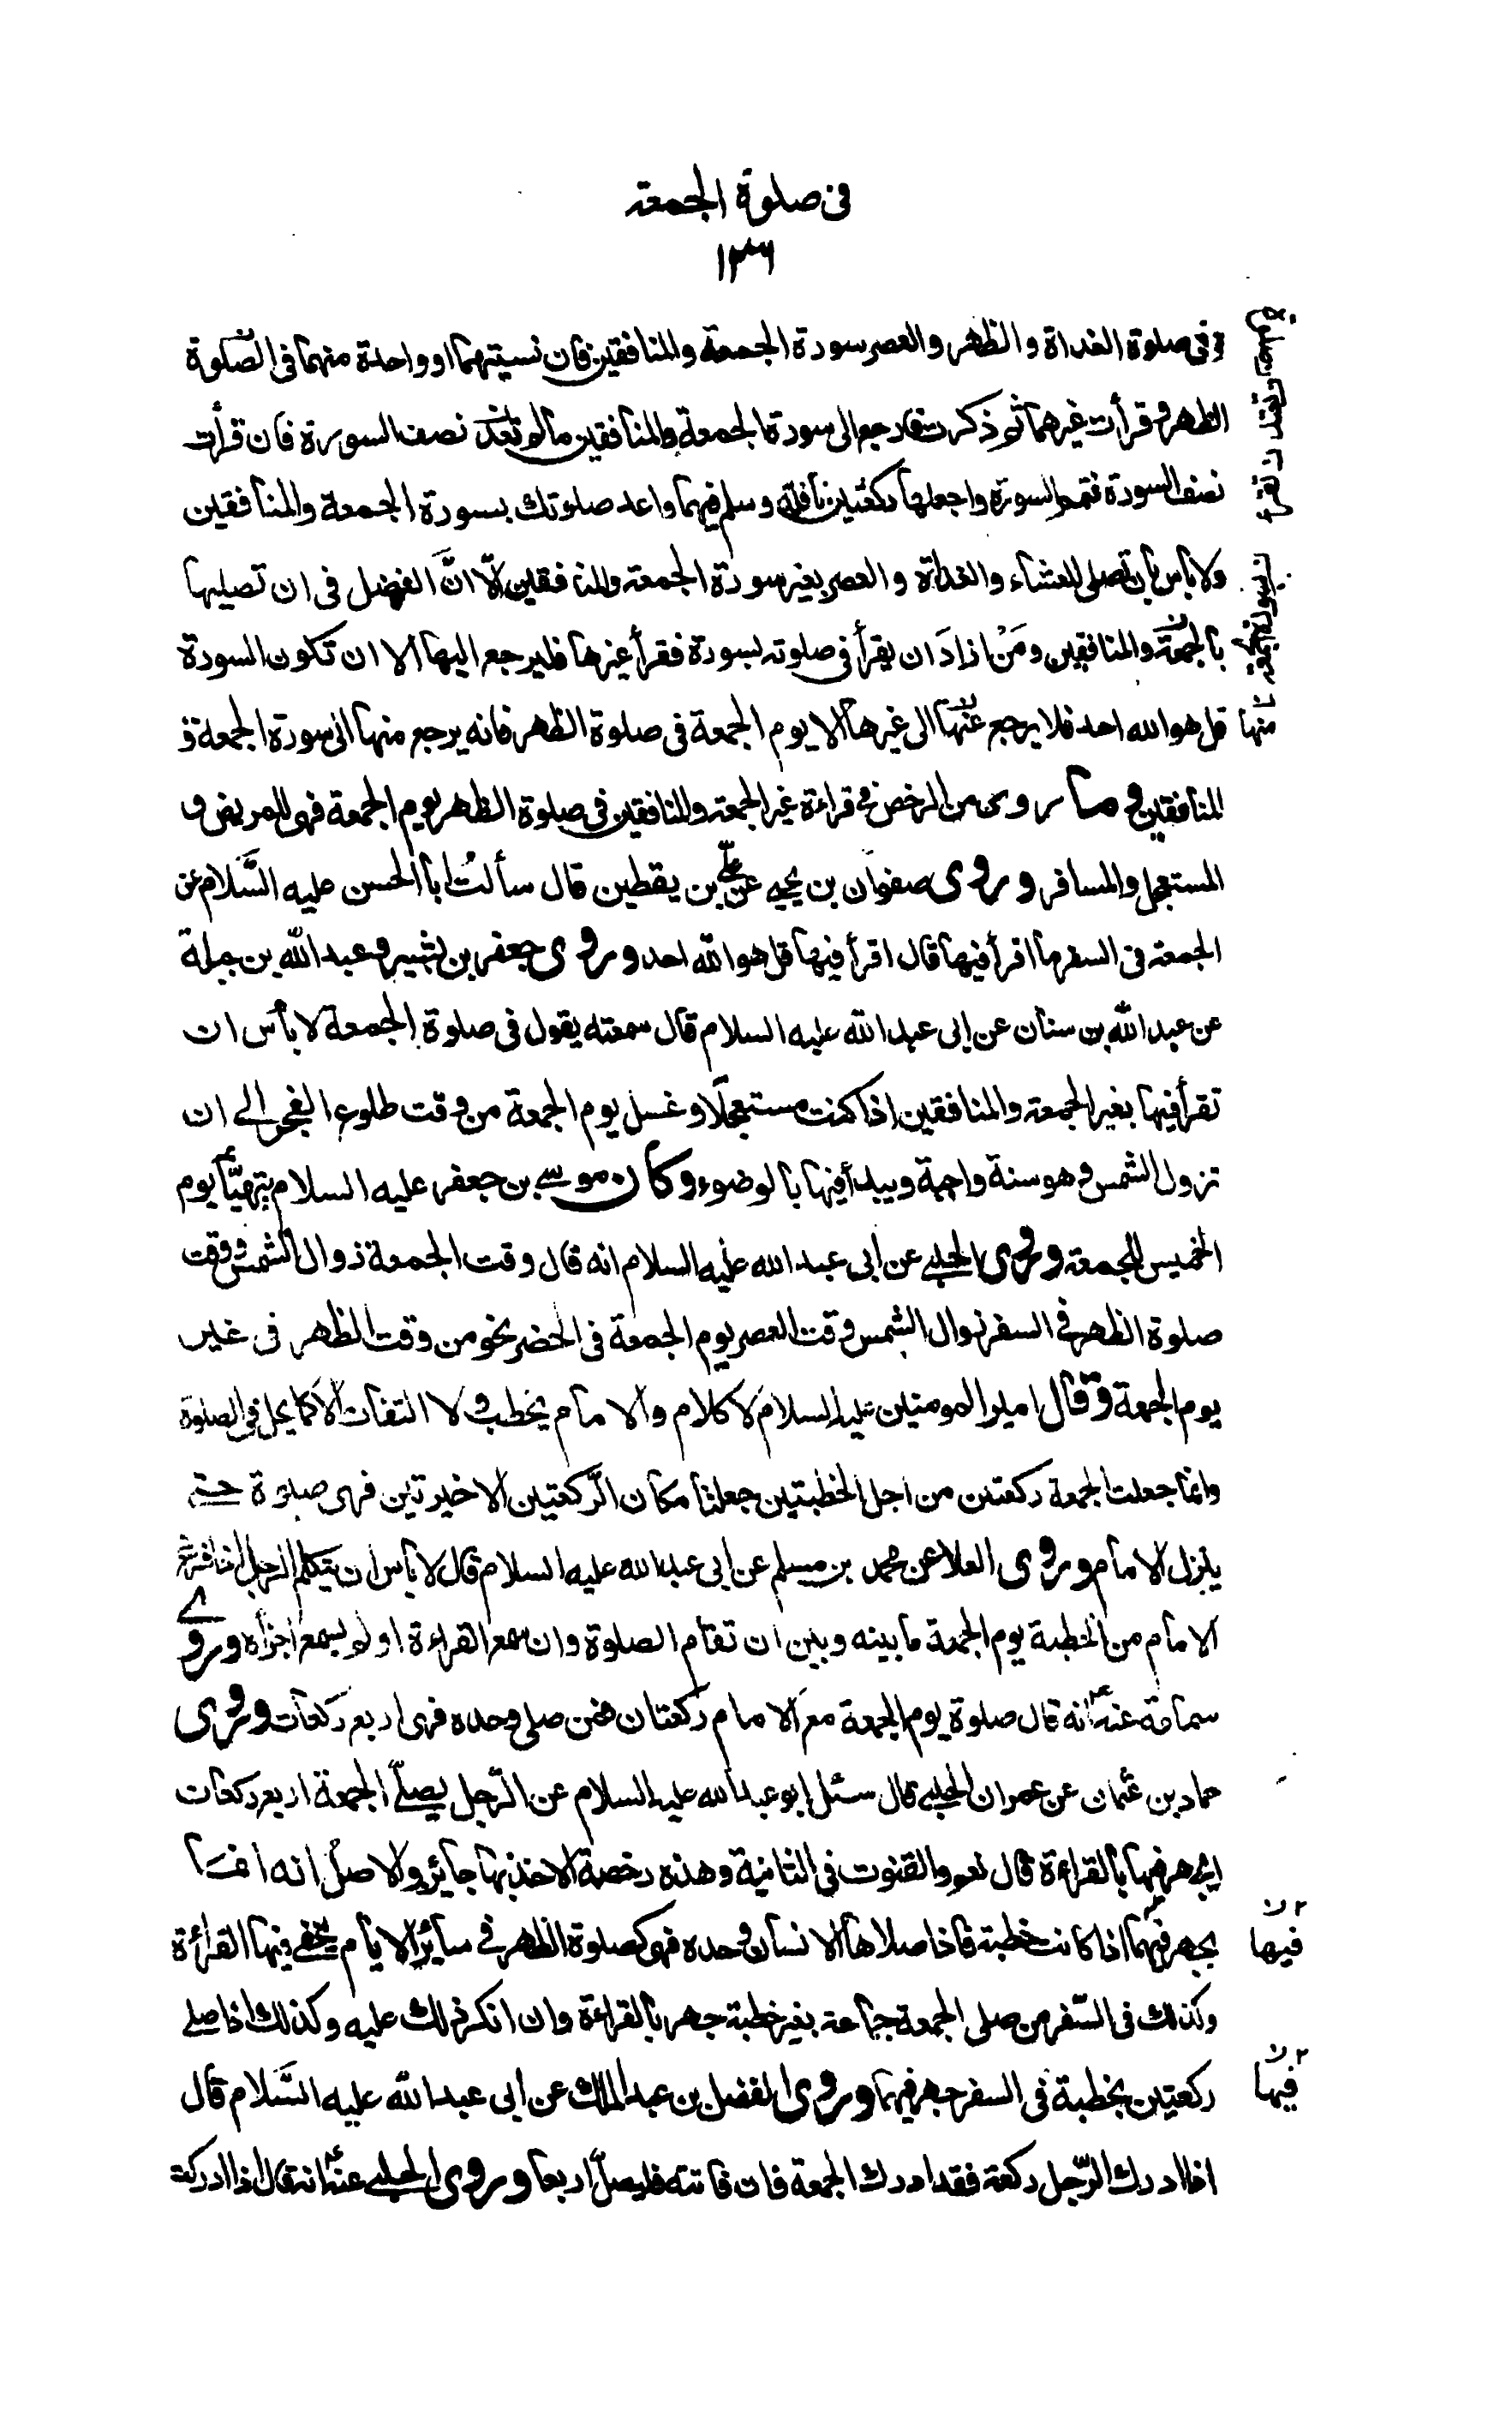 فى صلوة الجمعة
١٣٦
وفى صلوة الغداة والظهر والعصر سورة الجمعة والمنافقين فان نسيتهما او واحدة منهما فى الصلوة
الظهر وقرأت غيرهما ثم ذكرت فارجع الى سورة الجمعة والمنافقين مالم تعد نصف السورة فان قرأت
نصف السورة فتمم السورة واجعلها ركعتين نافلة وسلم فيهما واعد صلوتك بسورة الجمعة والمنافقين
ولا باس بان تصلى العشاء والغداة والعصر بغير سورة الجمعة والمنافقين الّا انَّ الفضل فى ان تصليها
بالجمعة والمنافقين ومَنْ ارادَ ان يقرأ فى صلوته بسورة فقرأ غيرها فليرجع اليها الا ان تكون السورة
قل هو الله احد فلا يرجع عنها الى غيرها الا يوم الجمعة فى صلوة الظهر فانه يرجع منها الى سورة الجمعة و
منها
المنافقين وما روى من الرخص فى قراءة غير الجمعة والمنافقين فى صلوة الظهر يوم الجمعة فهى للمريض و
المستعجل والمسافر وروى صفوان بن يحيى عن على بن يقطين قال سألتُ ابا الحسن عليه السَّلام عن
الجمعة فى السفر ما اقرأ فيها قال اقرأ فيها قل هو الله احد وروى جعفر بن بشير وعبد الله بن جبلة
عن عبد الله بن سنان عن ابى عبد الله عليه السلام قال سمعته يقول فى صلوة الجمعة لا بأس ان
تقرأ فيها بغير الجمعة والمنافقين اذا كنت مستعجلًا وغسل يوم الجمعة من وقت طلوع الفجر الى ان
تزول الشمس وهو سنة واجبة ويبدأ فيها بالوضوء وكان موسى بن جعفر عليه السلام يتهيّأ يوم
الخميس للجمعة وروى الحلبى عن ابى عبد الله عليه السلام انه قال وقت الجمعة زوال الشمس ووقت
صلوة الظهر فى السفر زوال الشمس وقت العصر يوم الجمعة فى الحضر نحو من وقت الظهر فى غير
يوم الجمعة وقال امير المومنين عليه السلام لا كلام والامام يخطب ولا التفات الا كما يحل فى الصلوة
وانما جعلت الجمعة ركعتين من اجل الخطبتين جعلتا مكان الرّكعتين الاخيرتين فهى صلوة حتى
ينزل الامام وروى العلا عن محمد بن مسلم عن ابى عبد الله عليه السلام قال لا بأس ان يتكلم الرجل اذا فرغ
الامام من الخطبة يوم الجمعة ما بينه وبين ان تقام الصلوة وان سمع القراءة او لم يسمع اجزأه وروى
سماعة عنه انه قال صلوة يوم الجمعة مع الامام ركعتان فمن صلى وحده فهى اربع ركعات وروى
حماد بن عثمان عن عمران الحلبى قال سئل ابو عبد الله عليه السلام عن الرّجل يصلّى الجمعة اربع ركعات
ايجهر فيها بالقراءة قال نعم والقنوت فى الثانية وهذه رخصة الاخذ بها جائز والاصل انه انما
يجهر فيهما اذا كانت خطبة فاذا صلاها الانسان وحده فهى كصلوة الظهر فى سائر الايام يخفى فيها القراءة
فيها
وكذلك فى السّفر من صلى الجمعة جماعة بغير خطبة جهر بالقراءة وان انكر ذلك عليه وكذلك اذا صلى
ركعتين بخطبة فى السفر جهر فيهما وروى الفضل بن عبد الملك عن ابى عبد الله عليه السَّلام قال
فيها
اذا ادرك الرّجل ركعة فقد ادرك الجمعة فان فاتته فليصلّ اربعا وروى الحلبى عنه انه قال اذا ادركت